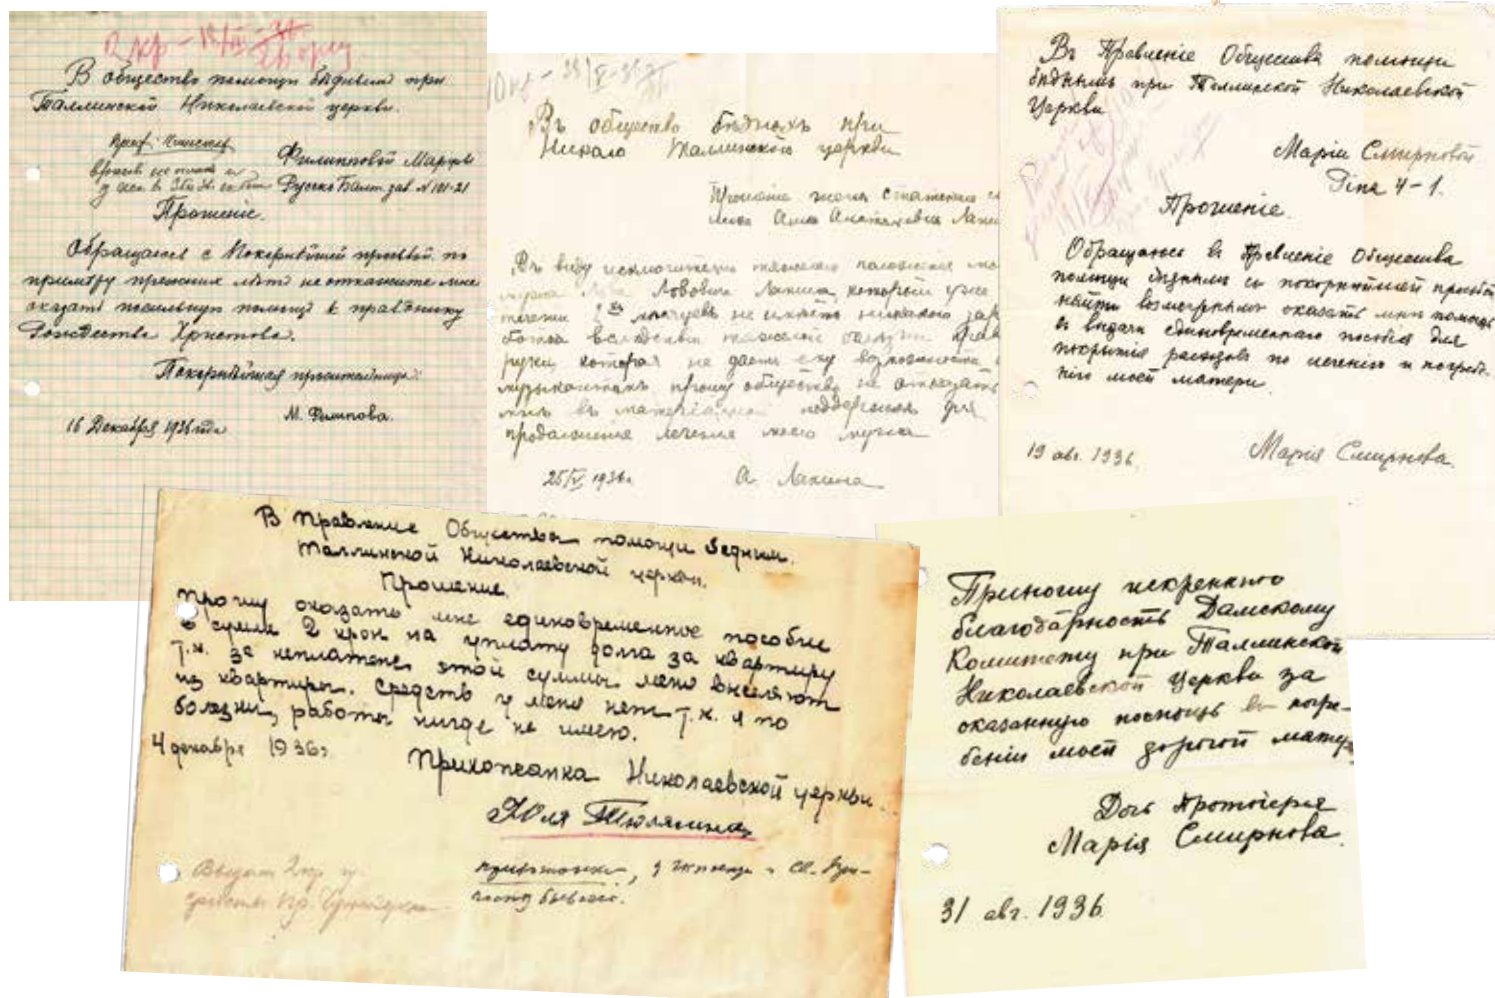 2 кр - 18/XII - 36
В общество помощи бѣднымъ при
Таллинской Николаевской церкви.
Филипповой Маріи
Русско Балт. зав. № 101-21
Прошеніе.
Обращаюсь с Покорнѣйшей просьбой по
примѣру прежних лѣт не откажите мне
оказать посильную помощь к празднику
Рождества Христова.
Покорнѣйшая просительница:
М. Филипова.
16 Декабря 1936 года
Въ общество бѣдныхъ при
Николо Таллинской церкви
Прошеніе жены
Анна
Въ виду исключительно тяжелаго положенія
мужа Льва Львовича Лакина, который уже
теченіи мѣсяцевъ не имѣетъ никакого
вслѣдствіи тяжелой болѣзни
руки которая не даетъ ему возможности
прошу общество не отказать
мнѣ въ матеріальной поддержкѣ для
продолженія леченія моего мужа
25/V 1936 г.
А. Лакина
Въ Правленіе Общества помощи
бѣднымъ при Таллинской Николаевской
Церкви
Маріи Смирновой
Pina 4-1.
Прошеніе.
Обращаюсь въ Правленіе Общества
помощи бѣднымъ съ покорнѣйшей просьбой
найти возможнымъ оказать мнѣ помощь
въ выдачи единовременнаго пособія для
покрытія расходовъ по леченію и погребе-
нію моей матери.
19 авг. 1936
Марія Смирнова.
В Правление Общества помощи бедным.
Таллинской Николаевской церкви.
Прошение.
Прошу оказать мне единовременное пособие
в сумме 2 крон на уплату долга за квартиру
т.к. за неплатеж этой суммы меня выселяют
из квартиры. Средств у меня нет т.к. я по
болезни, работы нигде не имею.
4 декабря 1936г.
Прихожанка Николаевской церкви.
Юля
Выдать 2 кр
Приношу искреннюю
благодарность Дамскому
Комитету при Таллинской
Николаевской Церкви за
оказанную помощь въ погре-
беніи моей дорогой матери
Дочь Протоіерея
Марія Смирнова.
31 авг. 1936.